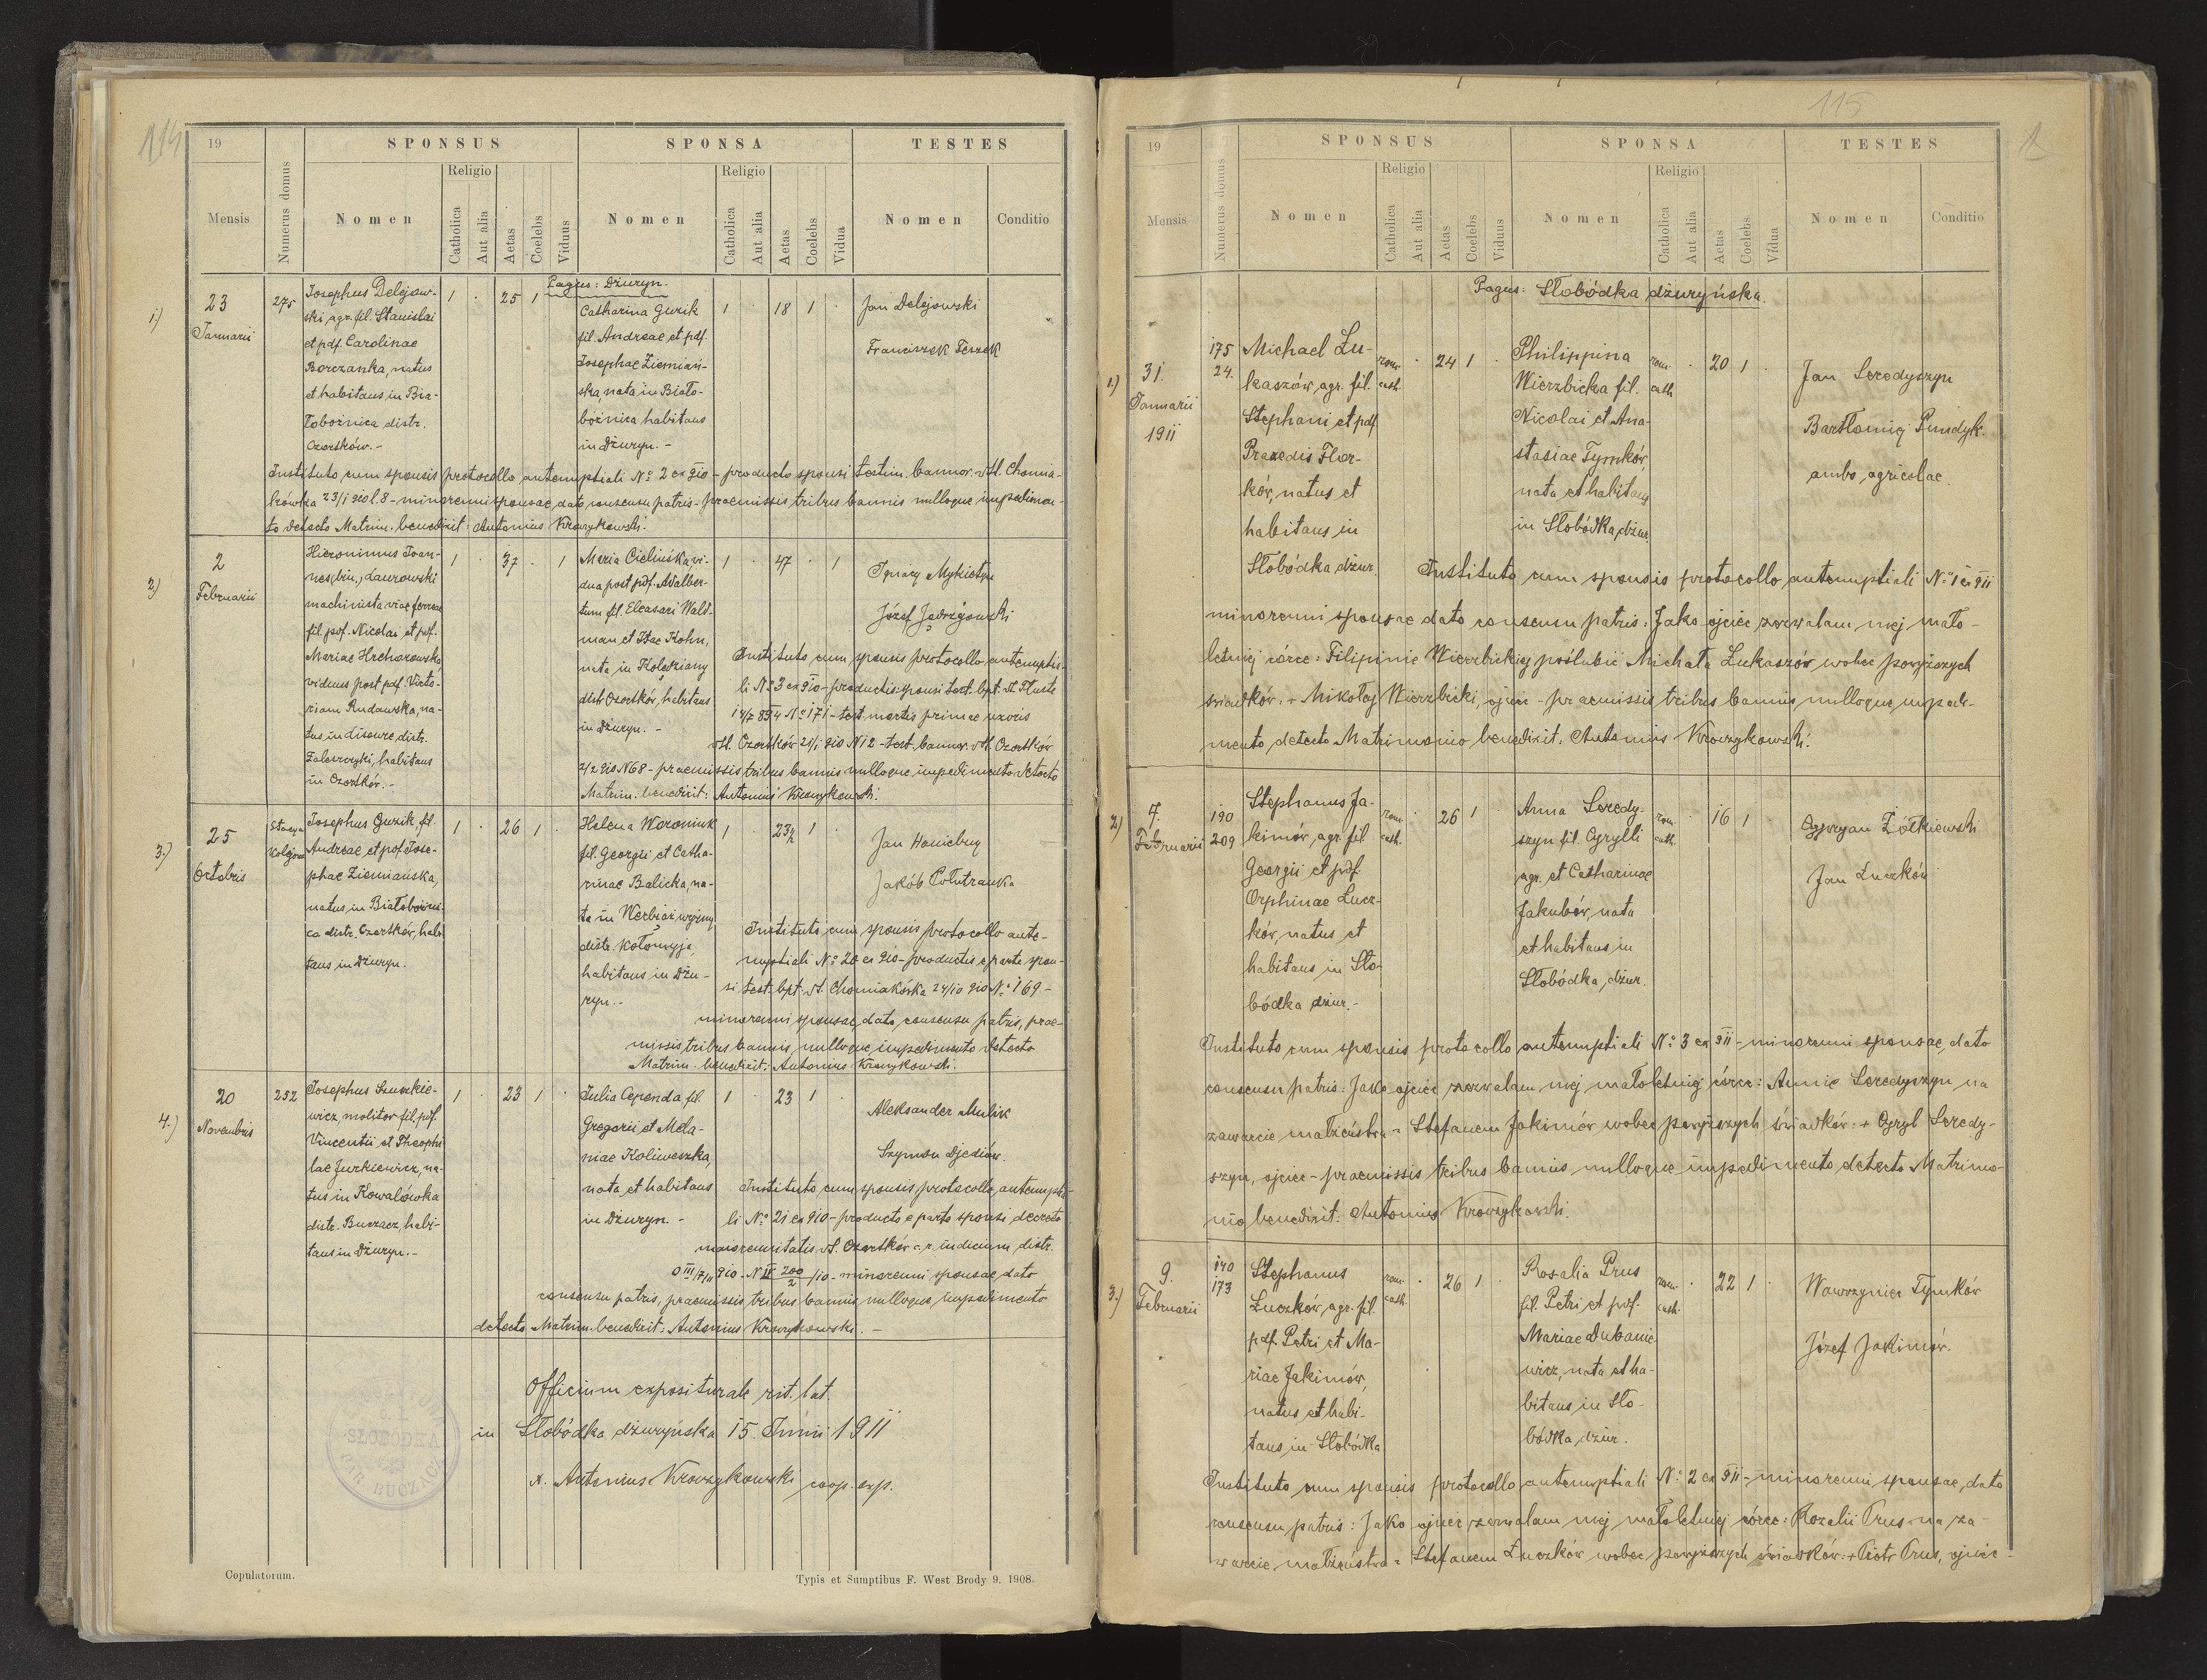 114
19
SPONSUS
SPONSA
TESTES
Mensis
Numerus domus
Nomen
Religio
Catholica
Aut alia
Aetas
Coelebs
Viduus
Nomen
Religio
Catholica
Aut alia
Aetas
Coelebs
Vidua
Nomen
Conditio
Pagus: Dżuryn.
1)
23
Januarii
275
Josephus Delejow-
ski, agr. fil. Stanislai
et pdf. Carolinae
Borczanka, natus
et habitans in Bia-
łobożnica distr.
Czortków.-
1 . 25 1
Catharina Guzik
fil. Andreae et pdf.
Josephae Ziemiań-
ska, nata in Biało-
bożnica habitans
in Dżuryn.-
1 . 18 1 .
Jan Delejowski
Franciszek Teszek
Instituto cum sponsis protocollo antenuptiali No 2 ex 910 - producto sponsi testim. bannor. dtt. Chomia-
kówka 23/1 910 l. 8 - minorenni sponsae, dato consensu patris - praemissis tribus bannis nulloque impedimen-
to detecto Matrim. benedixit: Antonius Krowzykowski.
2)
2
Februarii
Hieronimus Joan-
nes (bin.) Laurowski
machinista viae ferreae
fil. pdf. Nicolai et pdf.
Mariae Hrehorowska,
viduus post pdf. Victo-
riam Rudawska, na-
tus in Lisowce, distr.
Zaleszczyki, habitans
in Czortków.-
1 . 37 . 1
Maria Cielińska, vi-
dua post pdf. Adalber-
tum fil. Eleasari Wald-
man et Itae Kohn,
nata in Kolędziany
distr. Czortków, habitans
in Dżuryn.-
1 . 47 . 1
Ignacy Mykietyn
Józef Jędrzejowski
Instituto cum sponsis protocollo antenuptia-
li No 3 ex 910 - productis sponsi test. bpt. dt. Tłuste
14/2 854 No 171 - test. mortis primae uxoris
dtt. Czortków 21/1 910 N 12 - test. bannor. dtt. Czortków
2/2 910 N 68 - praemissis tribus bannis nulloque impedimento detecto
Matrim. benedixit: Antonius Krowzykowski.
3.)
25
Octobris
Stacya
Kolejowa
Josephus Guzik, fil.
Andreae et pdf. Jose-
phae Ziemiańska,
natus in Białobożni-
ca distr. Czortków, habi-
tans in Dżuryn.
1 . 26 1 .
Helena Woroniuk
fil. Georgii et Catha-
rinae Balicka, na-
ta in Werbiąż wyżny
distr. Kołomyja,
habitans in Dżu-
ryn.-
1 . 23½ 1
Jan Honicbug
Jakób Połutranka
Instituto cum sponsis protocollo ante-
nuptiali No 20 ex 910 - productis e parte spon-
si test. bpt. dt. Chomiakówka 24/10 910 No 169 -
minorenni sponsae, dato consensu patris, prae-
missis tribus bannis, nulloque impedimento detecto
Matrim. benedixit: Antonius Krowzykowski.
4.)
20
Novembris
252
Josephus Szuszkie-
wicz, molitor fil. pdf.
Vincentii et Theophi-
lae Jurkiewicz, na-
tus in Kowalówka
distr. Buczacz, habi-
tans in Dżuryn.-
1 . 23 1 .
Julia Cependa, fil.
Gregorii et Mela-
niae Koliweszka,
nata et habitans
in Dżuryn.-
1 . 23 1 .
Aleksander Mulik
Szymon Djediów.
Instituto cum sponsis protocollo antenuptia-
li No 21 ex 910 - producto e parte sponsi decreto
maiorennitatis dt. Czortków c. r. iudicium distr.
7/11 910 - N 200/2 /10 - minorenni sponsae, dato
consensu patris, praemissis tribus bannis, nulloque impedimento
detecto Matrim. benedixit: Antonius Krowzykowski.-
Officium expositurale rit. lat.
in Słobódka dżuryńska 15. Junii 1911
X. Antonius Krowzykowski coop. exp.
SŁOBÓDKA
BUCZACZ
Copulatorum.
Typis et Sumptibus F. West Brody 9. 1908.
115
19
SPONSUS
SPONSA
TESTES
Mensis
Numerus domus
Nomen
Religio
Catholica
Aut alia
Aetas
Coelebs
Viduus
Nomen
Religio
Catholica
Aut alia
Aetas
Coelebs
Vidua
Nomen
Conditio
Pagus: Słobódka dżuryńska.
1)
31.
Januarii
1911
175
24.
Michael Łu-
kaszów, agr. fil.
Stephani et pdf.
Praxedis Flor-
ków, natus et
habitans in
Słobódka dżur.
rom.
cath.
. 24 1 .
Philippina
Wierzbicka fil.
Nicolai et Ana-
stasiae Tymków,
nata et habitans
in Słobódka, dżur.
rom.
cath.
. 20 1 .
Jan Seredyszyn
Bartłomiej Pundyk.
ambo agricolae.
Instituto cum sponsis protocollo antenuptiali No 1 ex 911
minorenni sponsae dato consensu patris: Jako ojciec zezwalam mej mało-
letniej córce: Filipinie Wierzbickiej poślubić Michała Łukaszów wobec powyższych
świadków: + Mikołaj Wierzbicki, ojciec - praemissis tribus bannis, nulloque, impedi-
mento, detecto Matrimonio benedixit: Antonius Krowzykowski.
2)
7.
Februarii
190
209
Stephanus Ja-
kimów, agr. fil.
Georgii et pdf.
Orphinae Łucz-
ków, natus et
habitans in Sło-
bódka dżur.-
rom.
cath.
. 26 1 .
Anna Seredy-
szyn fil. Cyrylli
agr. et Catharinae
Jakubów, nata
et habitans in
Słobódka, dżur.
rom.
cath.
. 16 1 .
Cypryan Żółkiewski
Jan Łuczków
Instituto cum sponsis protocollo antenuptiali No 3 ex 911 - minorenni sponsae, dato
consensu patris: Jako ojciec zezwalam mej małoletniej córce: Annie Seredyszyn na
zawarcie małżeństwa z Stefanem Jakimów wobec powyższych świadków: + Cyryl Seredy-
szyn, ojciec - praemissis tribus bannis nulloque impedimento detecto Matrimo-
nio benedixit: Antonius Krowzykowski.
3.)
9.
Februarii
140
173
Stephanus
Łuczków, agr. fil.
pdf. Petri et Ma-
riae Jakimów,
natus et habi-
tans in Słobódka
rom.
cath.
. 26 1 .
Rosalia Prus
fil. Petri et pdf.
Mariae Dubanie-
wicz, nata et ha-
bitans in Sło-
bódka, dżur.
rom.
cath.
. 22 1 .
Wawrzyniec Tymków
Józef Jakimów.
Instituto cum sponsis protocollo antenuptiali No 2 ex 911 - minorenni sponsae, dato
consensu patris: Jako ojciec zezwalam mej małoletniej córce: Rozalii Prus na za-
warcie małżeństwa z Stefanem Łuczków wobec powyższych świadków: + Piotr Prus, ojciec -